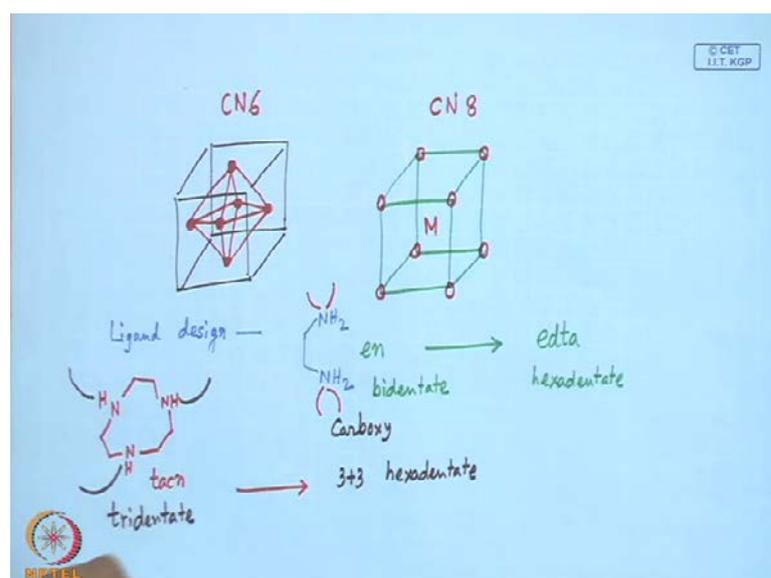 © CET
I.I.T. KGP
CN6
CN 8
M
Ligand design —
NH2
en
NH2
bidentate
edta
hexadentate
H
N
NH
N
H
Carboxy
tacn
tridentate
3+3 hexadentate
NPTEL